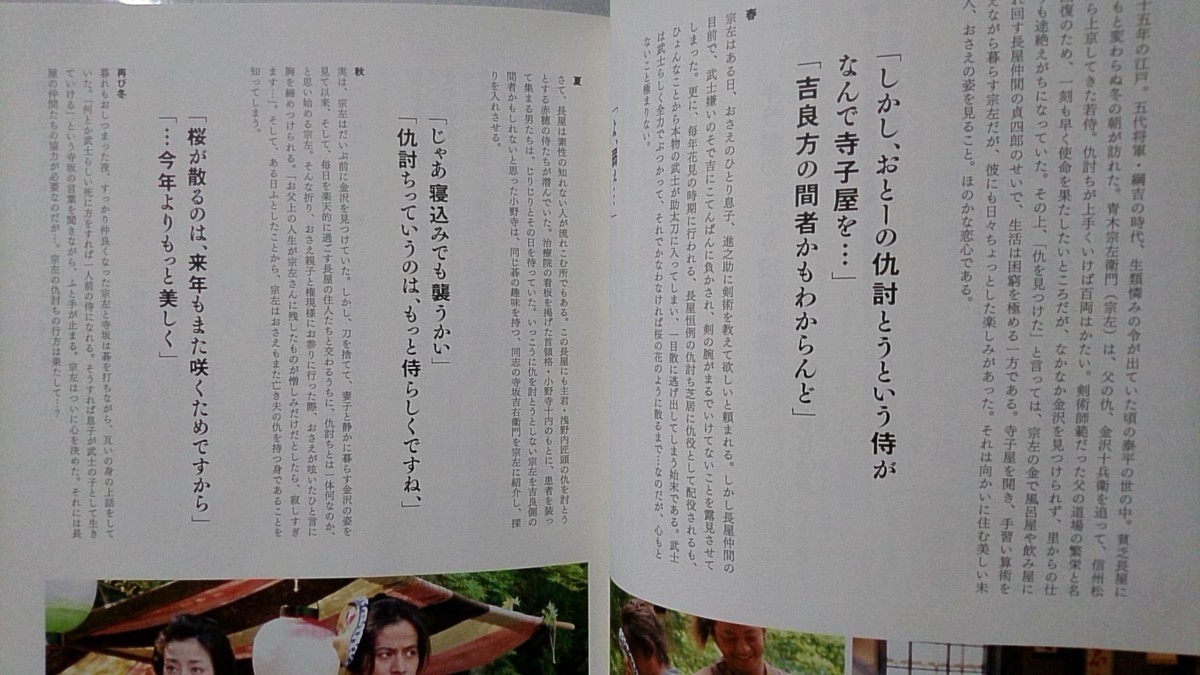 十五年の江戸。五代将軍・綱吉の時代、生類憐みの令が出ていた頃の泰平の世の中。貧乏長屋に
もと変わらぬ冬の朝が訪れた。青木宗左衛門（宗左）は、父の仇、金沢十兵衛を追って、信州松
ら上京してきた若侍。仇討ちが上手くいけば百両はかたい。剣術師範だった父の道場の繁栄と名
復のため、一刻も早く使命を果たしたいところだが、なかなか金沢を見つけられず、里からの仕
も途絶えがちになっていた。その上、「仇を見つけた」と言っては、宗左の金で風呂屋や飲み屋に
れ回す長屋仲間の貞四郎のせいで、生活は困窮を極める一方である。寺子屋を開き、手習い算術を
えながら暮らす宗左だが、彼にも日々ちょっとした楽しみがあった。それは向かいに住む美しい未
人、おさえの姿を見ること。ほのかな恋心である。
「しかし、おとーの仇討とうという侍が
なんで寺子屋を…」
「吉良方の間者かもわからんど」
春
宗左はある日、おさえのひとり息子、進之助に剣術を教えて欲しいと頼まれる。しかし長屋仲間の
目前で、武士嫌いのそで吉にこてんぱんに負かされ、剣の腕がまるでいけてないことを露見させて
しまった。更に、毎年花見の時期に行われる、長屋恒例の仇討ち芝居に仇役として配役されるも、
ひょんなことから本物の武士が助太刀に入ってしまい、一目散に逃げ出してしまう始末である。武士
は武士らしく全力でぶつかって、それでかなわなければ桜の花のように散るまで…なのだが、心もと
ないこと極まりない。
夏
さて、長屋は素性の知れない人が流れこむ所でもある。この長屋にも主君・浅野内匠頭の仇を討とう
とする赤穂の侍たちが潜んでいた。治療院の看板を掲げた首領格・小野寺十内のもとに、患者を装っ
て集まる男たちは、じりじりとその日を待っていた。いっこうに仇を討とうとしない宗左を吉良側の
間者かもしれないと思った小野寺は、同じ碁の趣味を持つ、同志の寺坂吉右衛門を宗左に紹介し、探
りを入れさせる。
「じゃあ 寝込みでも襲うかい」
「仇討ちっていうのは、もっと侍らしくですね、」
秋
実は、宗左はだいぶ前に金沢を見つけていた。しかし、刀を捨てて、妻子と静かに暮らす金沢の姿を
見て以来、そして、毎日を楽天的に過ごす長屋の住人たちと交わるうちに、仇討ちとは一体何なのか、
と思い始める宗左。そんな折り、おさえ親子と権現様にお参りに行った際、おさえが呟いたひと言に
胸を締めつけられる。「お父上の人生が宗左さんに残したものが憎しみだけだとしたら、寂しすぎ
ます…」。そして、ある日ふとしたことから、宗左はおさえもまた亡き夫の仇を持つ身であることを
知ってしまう。
「桜が散るのは、来年もまた咲くためですから」
「…今年よりもっと美しく」
再び冬
暮れもおしつまった夜、すっかり仲良くなった宗左と寺坂は碁を打ちながら、互いの身の上話をして
いた。「何とか武士らしい死に方をすれば一人前の侍になれる。そうすれば息子が武士の子として生き
ていける」という寺坂の言葉を聞きながら、ふと手が止まる。宗左はついに心を決めた。それには長
屋の仲間たちの協力が必要なのだが…。宗左の仇討ちの行方は果たして…？